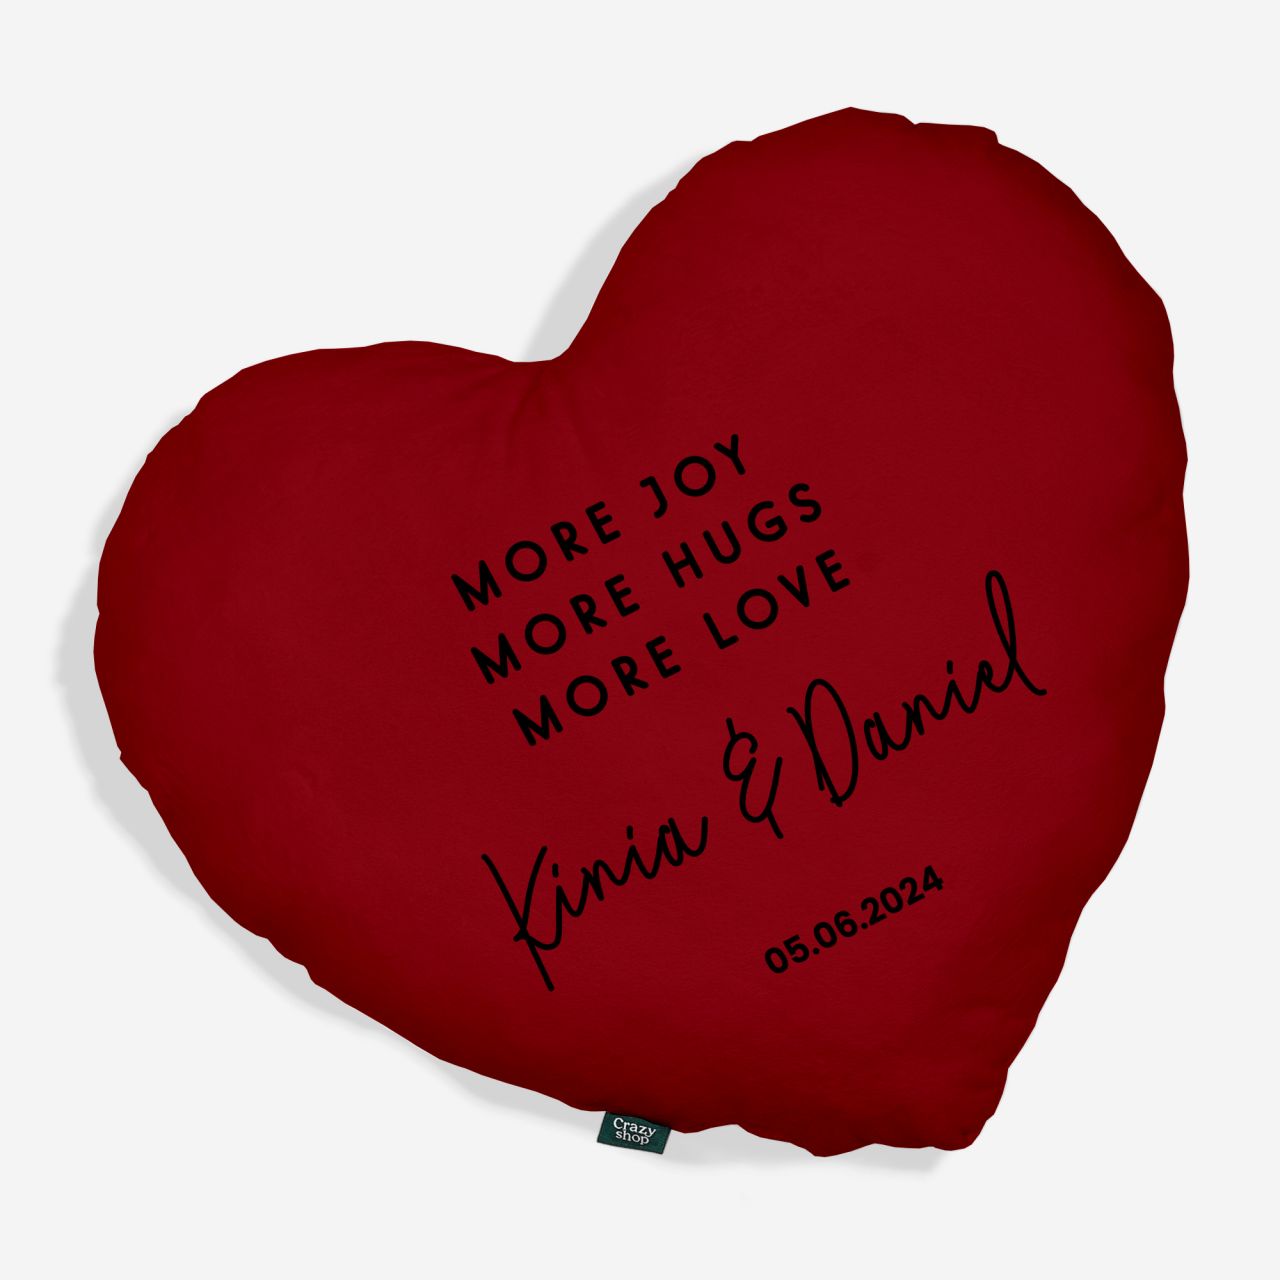 MORE JOY
MORE HUGS
MORE LOVE
Kinia & Daniel
05.06.2024
Crazy
shop